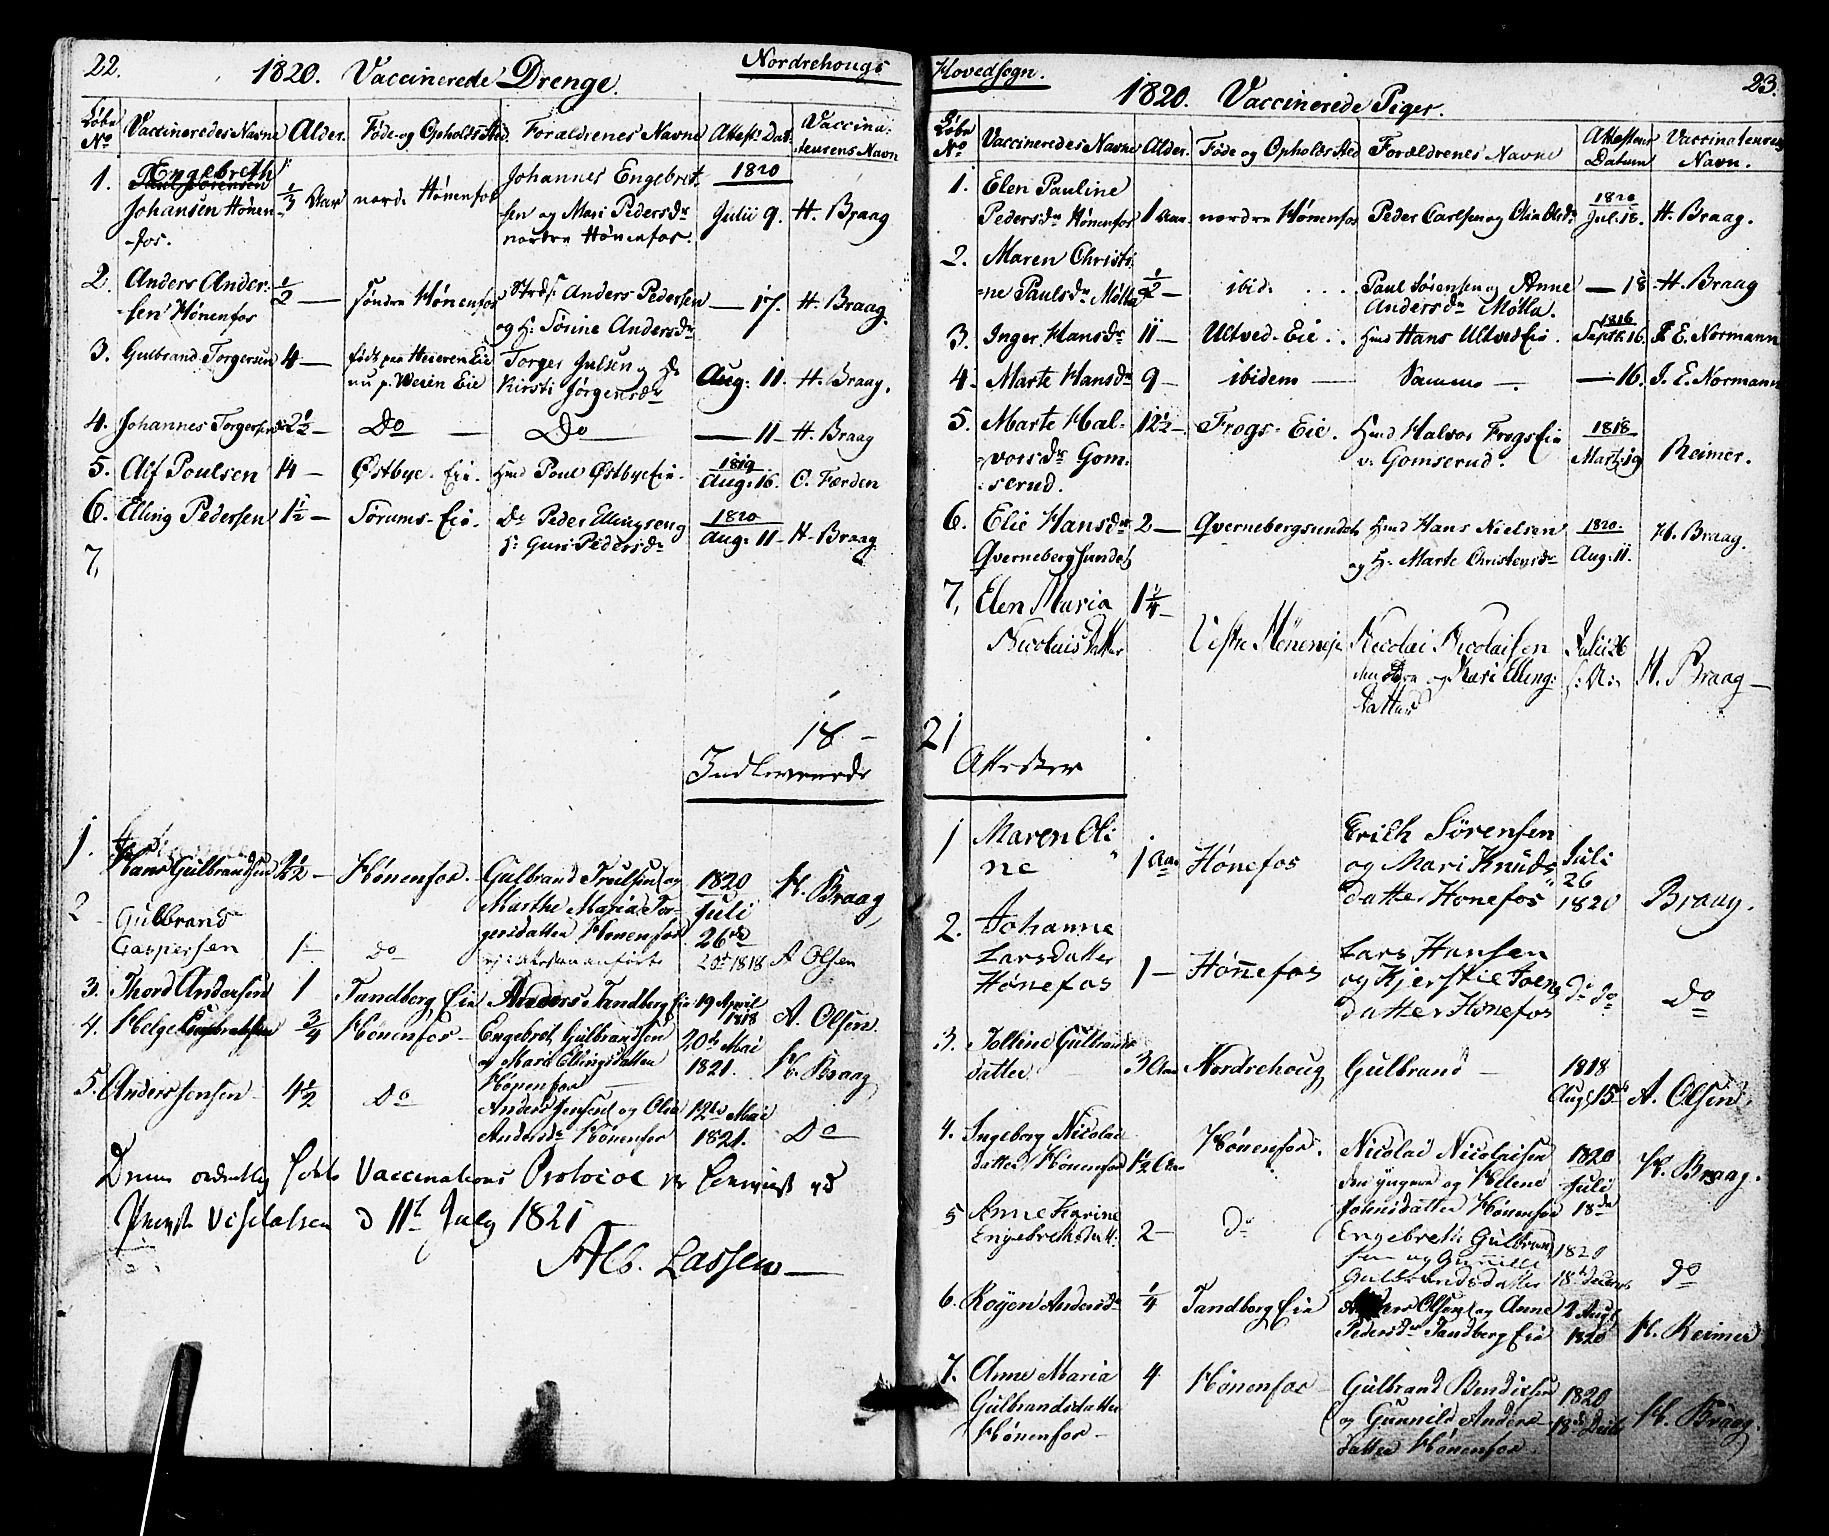 22.
1820. Vaccinerede Drenge.
Nordrehougs
Løbe No Vaccineredes Navne Alder. Føde- og Opholds Sted. Forældrenes Navne Attest: Dat. Vaccinateurens Navn
1. Engebreth Johansen Hönenfos. 1/3 Aar nordr. Hönenfos Johannes Engebretsen og Mari Pedersdr nordre Hönenfos. 1820 Julii 9. H. Braag
2. Anders Andersen Hönenfos 1/2 — söndre Hönenfos Anders Pedersen og H: Sörine Andersdr — 17. H. Braag.
3. Gulbrand Torgersen 4 — född paa Heieren Eie nu p. Weien Eie Torger Julsen og H: Kirsti Jörgensdr Aug: 11. H. Braag.
4. Johannes Torgersen 2 1/2 — Do — Do — 11 — H. Braag
5. Alf Poulsen 14 — Östbye. Eie. Hmd Poul Östbye Eie. 1819 Aug: 16. O. Færden
6. Elling Pedersen 1 1/2 — Sörums- Eie. Do Peder Ellingsen og H: Guri Pedersdr 1820 Aug: 11 — H. Braag
7,
18 —
Indleverede
1. Hans Gulbrandsen 2 1/2 — Hönenfos. Gulbrand Truelsen og Marthe Maria Torgersdatter Hönenfos 1820 Juli 26de H. Braag
2 Gulbrand Caspersen 1 — do 1818 A Olsen
3. Thord Andersen 1 Tandberg Eie Anders Tandberg Eie 19 April 1818 A. Olsen.
4. Helge 3/4 Hönenfos — Engebret Gulbrandsen og Mari Ellingsdatter Hönenfos 20de Mai 1821. H. Braag
5. Anders Jensen 4 1/2 Do Anders Jensen og Olia Andersdr Hönenfos 12te Mai 1821. Do
Denne ordentlig förte Vaccinations Protocol er
Visitatsen d 11t July 1821
Alb. Lassen —
Hovedsogn.
23.
1820. Vaccinerede Piger.
Løbe No Vaccineredes Navne Alder. Føde og Opholds Sted Forældrenes Navne Attestens Datum Vaccinateurens Navn.
1. Elen Pauline Pedersdr Hönenfos 1 Aar nordre Hönenfos Peder Carlsen og Olia Olsdr 1820 Jul. 18. H. Braag.
2. Maren Christine Paulsdr Mölla 1/2 — ibid. Paul Sörensen og Anne Andersdr Mölla. — 18 H. Braag
3. Inger Hansdr 11 — Ultved- Eie. Hmd Hans Ultved Eie. 1816 Septb. 16. J. E. Normann
4. Marte Hansdr 9 — ibidem — Samme —. — 16. J. E. Normann
5. Marte Halvorsdr Gomserud. 12 1/2 — Frogs- Eie. Hmd Halvor Frogs Eie v. Gomserud. 1818 Mart. 19 Reimer.
6. Elie Hansdr Qvernebergsundet 2 — Qvernebergsundet Hmd Hans Nielsen og H. Marte Christensdr 1820. Aug: 11. H. Braag.
7, Elen Maria Nicolaisdatter 1 1/4 — Vestre Nicolai Nicolaisen og Kari Ellingdatter Julii 26 s: A: H. Braag —
21
Attester
1 Maren Oline 1 Aar Hönefos Erich Sörensen og Mari Knudsdatter Honefos Juli 26 1820 Braag.
2. Johanne Larsdatter Hönefos 1 — Hönnefos Lars Hansen og Kjerstie datter Hönefos do do do
3. Jolline Gulbrandsdatter 3 Aar Nordrehoug Gulbrand — 1818 Aug. 15de A. Olsen
4. Ingeborg Nicolaidatter Hönenfos 1/2 Aar Hönenfos. Nicolai Nicolaisen den yngere og Helene Johnsdatter Hönenfos 1820 Juli 18de H. Braag.
5 Anne Karine Engebrethsdatt. 2 — do Engebreth Gulbrandsen og Gunnild Gulbrandsdatter 1820 18de Decbr do
6. Rogon Andersdr 1/4 Tandberg Eie Anders Olsen og Anne Pedersdr Tandberg Eie 2 Aug. 1820 H. Reimer
7. Anne Maria Gulbrandsdatter Hönenfos — 4 Hönenfos Gulbrand Bendixsen og Gunnild Andersdatter Hönenfos. 1820 18de Decbr H. Braag.